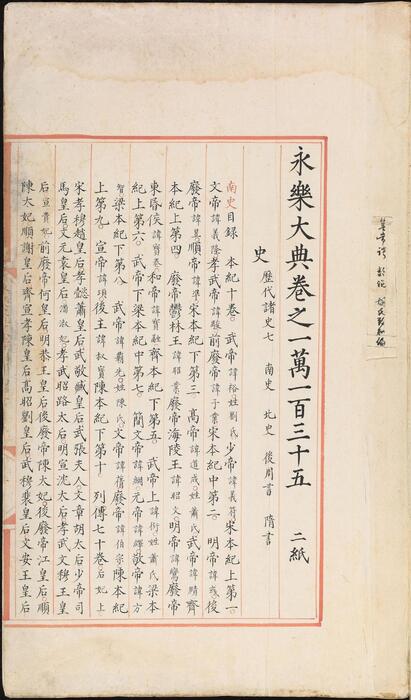 永樂大典卷之一萬一百三十五 二紙
史 歷代諸史七 南史 北史 後周書 隋書
南史目録 本紀十卷。武帝諱裕姓劉氏少帝諱義符宋本紀上第一。
文帝諱義隆孝武帝諱駿前廢帝諱子業宋本紀中第二。明帝諱彧後
廢帝諱昱順帝諱準宋本紀下第三。高帝諱道成姓蕭氏武帝諱賾齊
本紀上第四 廢帝鬱林王諱昭業廢帝海陵王諱昭文。明帝諱鸞廢帝
東昏侯諱寶卷和帝諱寶融齊本紀下第五。武帝上諱衍姓蕭氏梁本
紀上第六。武帝下梁本紀中第七。簡文帝諱綱元帝諱繹敬帝諱方
智梁本紀下第八 武帝諱霸先姓陳氏文帝諱蒨廢帝諱伯宗陳本紀
上第九。宣帝諱頊後主諱叔寶陳本紀下第十。列傳七十卷后妃上
宋孝穆趙皇后孝懿蕭皇后武敬臧皇后武張夫人文章胡太后少帝司
馬皇后文元袁皇后潘淑妃孝武昭路太后明宣沈太后孝武文穆王皇
后宣貴妃前廢帝何皇后明恭王皇后後廢帝陳太妃後廢帝江皇后順
陳太妃順謝皇后齊宣孝陳皇后高昭劉皇后武穆裴皇后文安王皇后